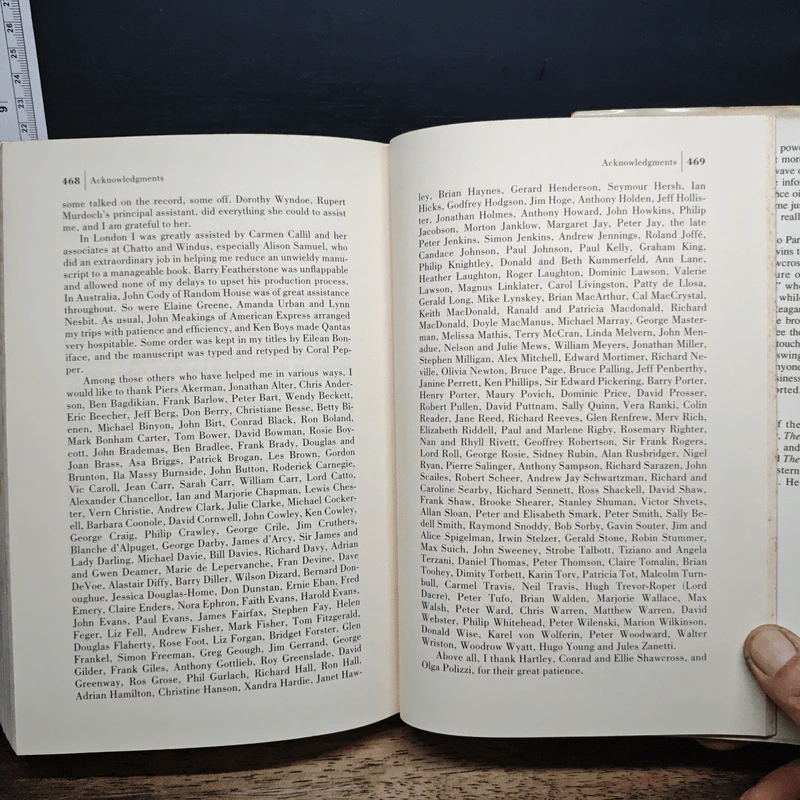 468 Acknowledgments
some talked on the record, some off. Dorothy Wyndoe, Rupert
Murdoch's principal assistant, did everything she could to assist
me, and I am grateful to her.
In London I was greatly assisted by Carmen Callil and her
associates at Chatto and Windus, especially Alison Samuel, who
did an extraordinary job in helping me reduce an unwieldy manu-
script to a manageable book. Barry Featherstone was unflappable
and allowed none of my delays to upset his production process.
In Australia, John Cody of Random House was of great assistance
throughout. So were Elaine Greene, Amanda Urban and Lynn
Nesbit. As usual, John Meakings of American Express arranged
my trips with patience and efficiency, and Ken Boys made Qantas
very hospitable. Some order was kept in my titles by Eilean Bon-
iface, and the manuscript was typed and retyped by Coral Pep-
per.
Among those others who have helped me in various ways, I
would like to thank Piers Akerman, Jonathan Alter, Chris Ander-
son, Ben Bagdikian, Frank Barlow, Peter Bart, Wendy Beckett,
Eric Beecher, Jeff Berg, Don Berry, Christiane Besse, Betty Bi-
enen, Michael Binyon, John Birt, Conrad Black, Ron Boland,
Mark Bonham Carter, Tom Bower, David Bowman, Rosie Boy-
cott, John Brademas, Ben Bradlee, Frank Brady, Douglas and
Joan Brass, Asa Briggs, Patrick Brogan, Les Brown, Gordon
Brunton, Ila Massy Burnside, John Button, Roderick Carnegie,
Vic Caroll, Jean Carr, Sarah Carr, William Carr, Lord Catto,
Alexander Chancellor, Ian and Marjorie Chapman, Lewis Ches-
ter, Vern Christie, Andrew Clark, Julie Clarke, Michael Cocker-
ell, Barbara Coonole, David Cornwell, John Cowley, Ken Cowley,
George Craig, Philip Crawley, George Crile, Jim Cruthers,
Blanche d'Alpuget, George Darby, James d'Arcy, Sir James and
Lady Darling, Michael Davie, Bill Davies, Richard Davy, Adrian
and Gwen Deamer, Marie de Lepervanche, Fran Devine, Dave
DeVoe, Alastair Diffy, Barry Diller, Wilson Dizard, Bernard Don-
oughue, Jessica Douglas-Home, Don Dunstan, Ernie Eban, Fred
Emery, Claire Enders, Nora Ephron, Faith Evans, Harold Evans,
John Evans, Paul Evans, James Fairfax, Stephen Fay, Helen
Feger, Liz Fell, Andrew Fisher, Mark Fisher, Tom Fitzgerald,
Douglas Flaherty, Rose Foot, Liz Forgan, Bridget Forster, Glen
Frankel, Simon Freeman, Greg Geough, Jim Gerrand, George
Gilder, Frank Giles, Anthony Gottlieb, Roy Greenslade, David
Greenway, Ros Grose, Phil Gurlach, Richard Hall, Ron Hall,
Adrian Hamilton, Christine Hanson, Xandra Hardie, Janet Haw-
Acknowledgments 469
ley, Brian Haynes, Gerard Henderson, Seymour Hersh, Ian
Hicks, Godfrey Hodgson, Jim Hoge, Anthony Holden, Jeff Hollis-
ter, Jonathan Holmes, Anthony Howard, John Howkins, Philip
Jacobson, Morton Janklow, Margaret Jay, Peter Jay, the late
Peter Jenkins, Simon Jenkins, Andrew Jennings, Roland Joffé,
Candace Johnson, Paul Johnson, Paul Kelly, Graham King,
Philip Knightley, Donald and Beth Kummerfeld, Ann Lane,
Heather Laughton, Roger Laughton, Dominic Lawson, Valerie
Lawson, Magnus Linklater, Carol Livingston, Patty de Llosa,
Gerald Long, Mike Lynskey, Brian MacArthur, Cal MacCrystal,
Keith MacDonald, Ranald and Patricia Macdonald, Richard
MacDonald, Doyle MacManus, Michael Marray, George Master-
man, Melissa Mathis, Terry McCran, Linda Melvern, John Men-
adue, Nelson and Julie Mews, William Meyers, Jonathan Miller,
Stephen Milligan, Alex Mitchell, Edward Mortimer, Richard Ne-
ville, Olivia Newton, Bruce Page, Bruce Palling, Jeff Penberthy,
Janine Perrett, Ken Phillips, Sir Edward Pickering, Barry Porter,
Henry Porter, Maury Povich, Dominic Price, David Prosser,
Robert Pullen, David Puttnam, Sally Quinn, Vera Ranki, Colin
Reader, Jane Reed, Richard Reeves, Glen Renfrew, Merv Rich,
Elizabeth Riddell, Paul and Marlene Rigby, Rosemary Righter,
Nan and Rhyll Rivett, Geoffrey Robertson, Sir Frank Rogers,
Lord Roll, George Rosie, Sidney Rubin, Alan Rusbridger, Nigel
Ryan, Pierre Salinger, Anthony Sampson, Richard Sarazen, John
Scailes, Robert Scheer, Andrew Jay Schwartzman, Richard and
Caroline Searby, Richard Sennett, Ross Shackell, David Shaw,
Frank Shaw, Brooke Shearer, Stanley Shuman, Victor Shvets,
Allan Sloan, Peter and Elisabeth Smark, Peter Smith, Sally Be-
dell Smith, Raymond Snoddy, Bob Sorby, Gavin Souter, Jim and
Alice Spigelman, Irwin Stelzer, Gerald Stone, Robin Stummer,
Max Suich, John Sweeney, Strobe Talbott, Tiziano and Angela
Terzani, Daniel Thomas, Peter Thomson, Claire Tomalin, Brian
Toohey, Dimity Torbett, Karin Torv, Patricia Tot, Malcolm Turn-
bull, Carmel Travis, Neil Travis, Hugh Trevor-Roper (Lord
Dacre), Peter Tufo, Brian Walden, Marjorie Wallace, Max
Walsh, Peter Ward, Chris Warren, Matthew Warren, David
Webster, Philip Whitehead, Peter Wilenski, Marion Wilkinson,
Donald Wise, Karel von Wolferin, Peter Woodward, Walter
Wriston, Woodrow Wyatt, Hugo Young and Jules Zanetti.
Above all, I thank Hartley, Conrad and Ellie Shawcross, and
Olga Polizzi, for their great patience.